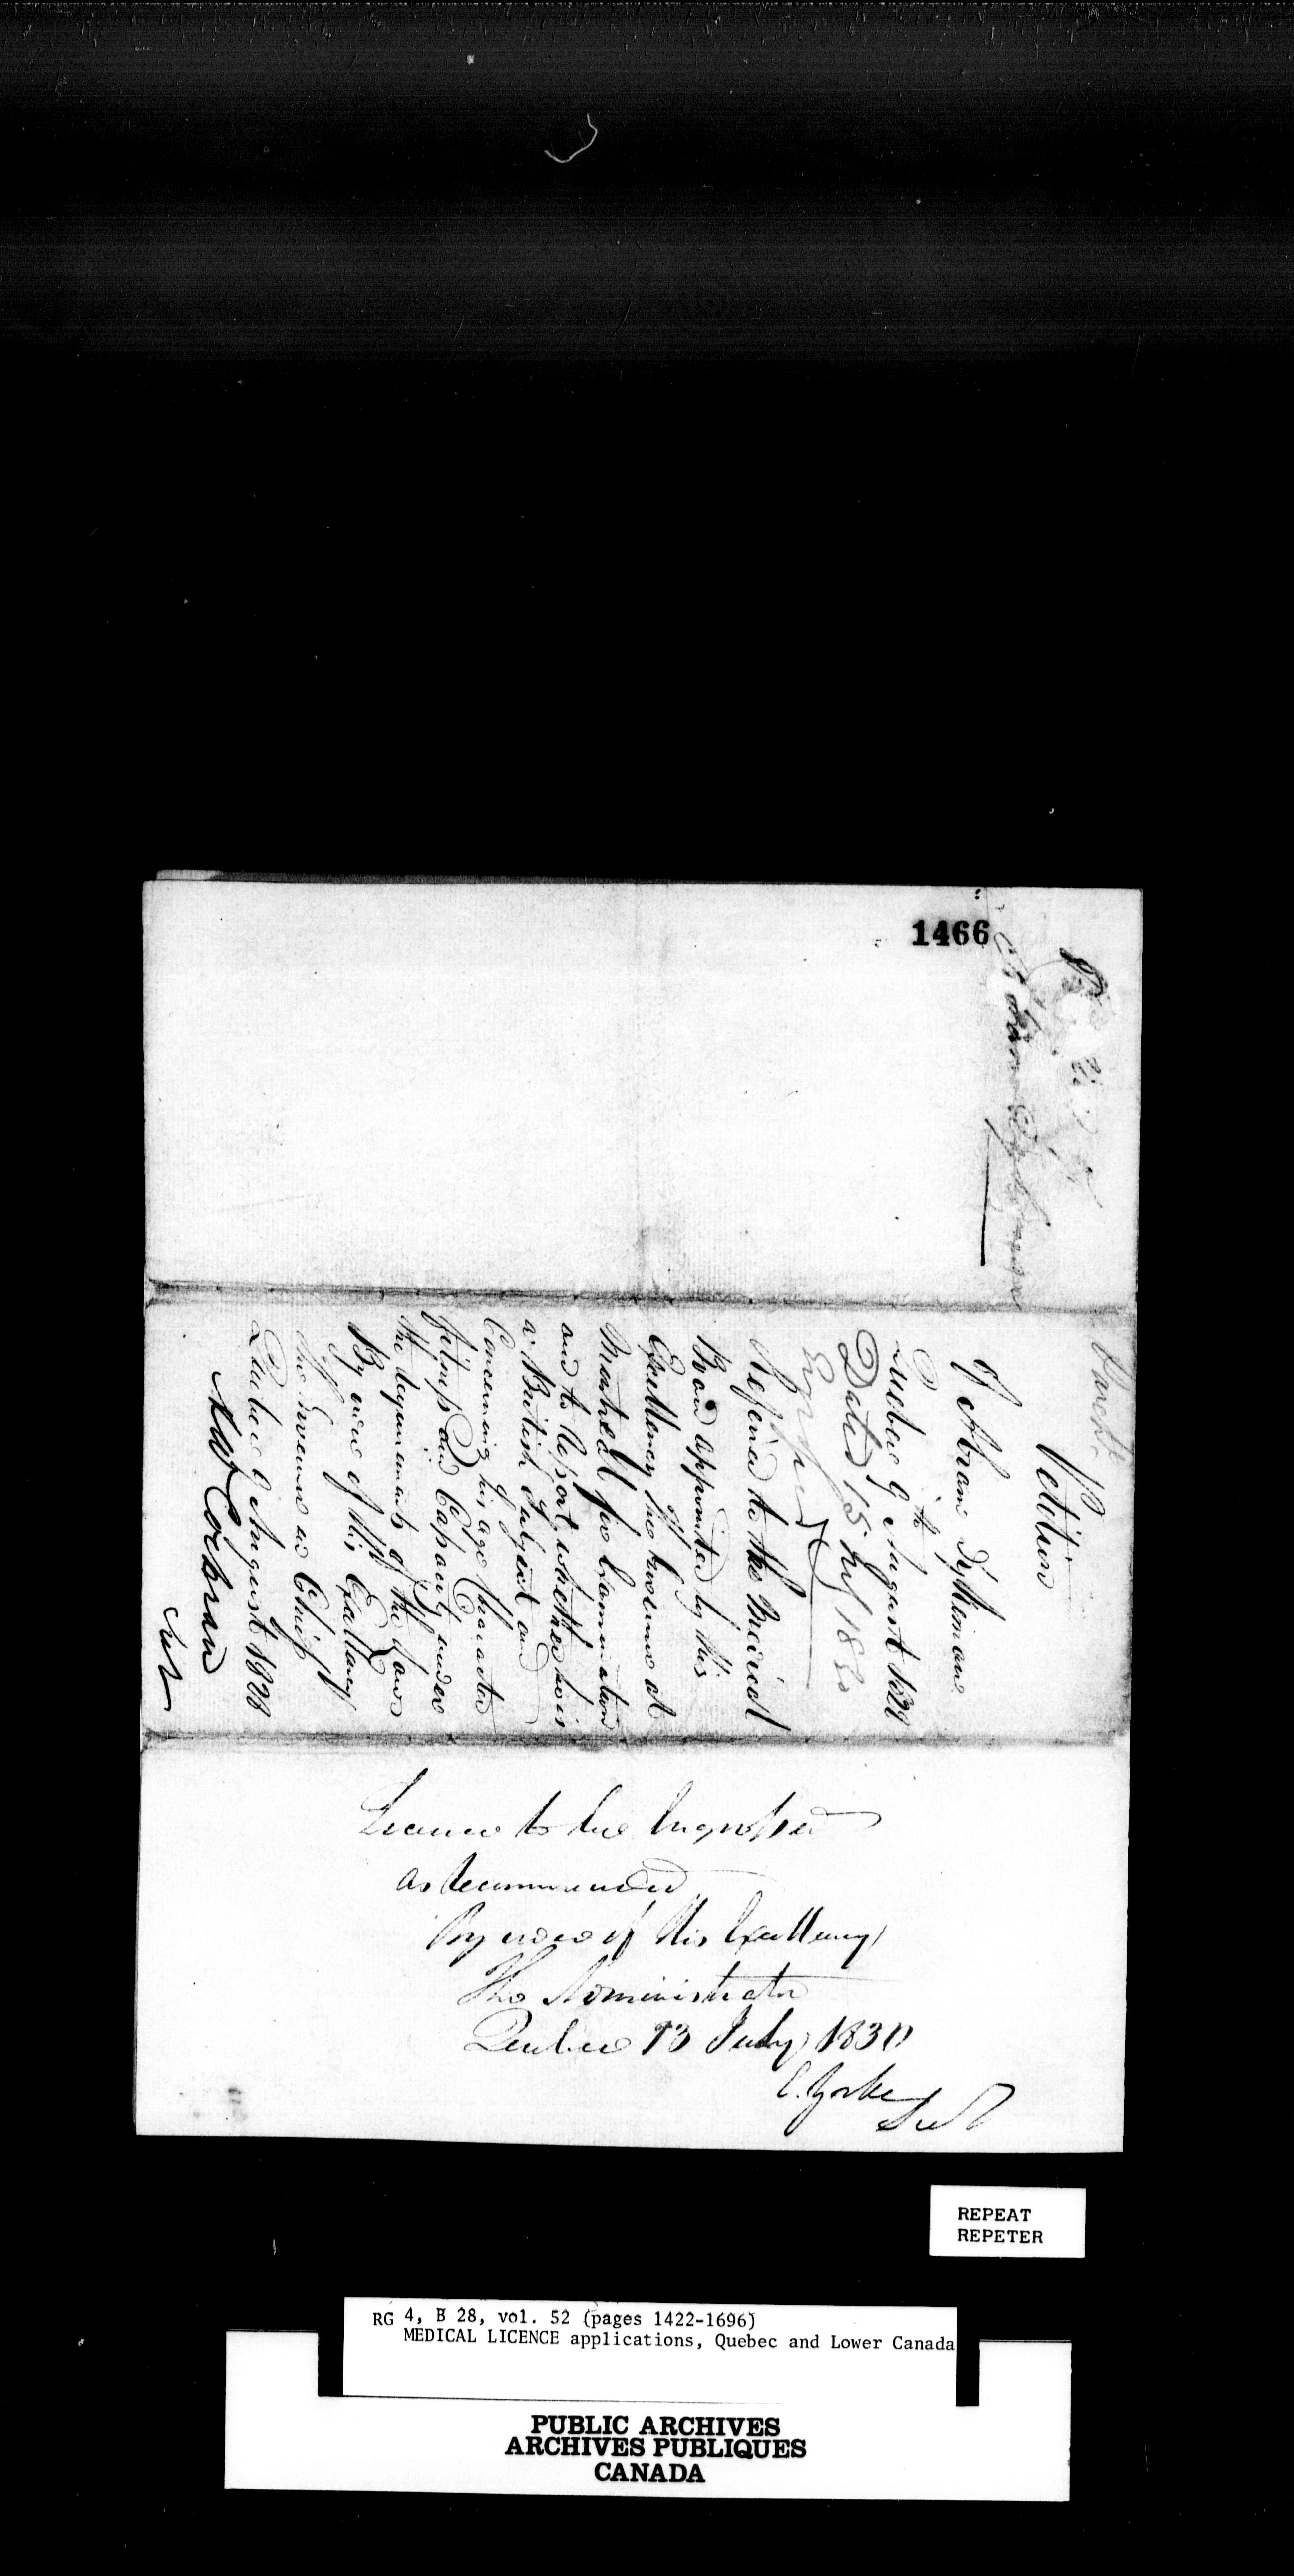 1466
Petition
Of Abram Sijtleman
Quebec 9th August 1828
Dated 15 July 1830
Refered to the Medical
Board appointed by His
Excellency the Governor at
Montreal for Examination
and to Report whether he is
a British Subject and
Concerning his age Character
fitness and Capacity under
the requirements of the Law
By order of His Excellency
The Governor in Chief
Quebec 9 August 1828
A W Cochran
Sec
Licence to be Engrossed
as Recommended
By order of His Excellency
The Administrator
Quebec 13 July 1830
C. Yorke
Sec
REPEAT
REPETER
RG 4, B 28, vol. 52 (pages 1422-1696)
MEDICAL LICENCE applications, Quebec and Lower Canada
PUBLIC ARCHIVES
ARCHIVES PUBLIQUES
CANADA